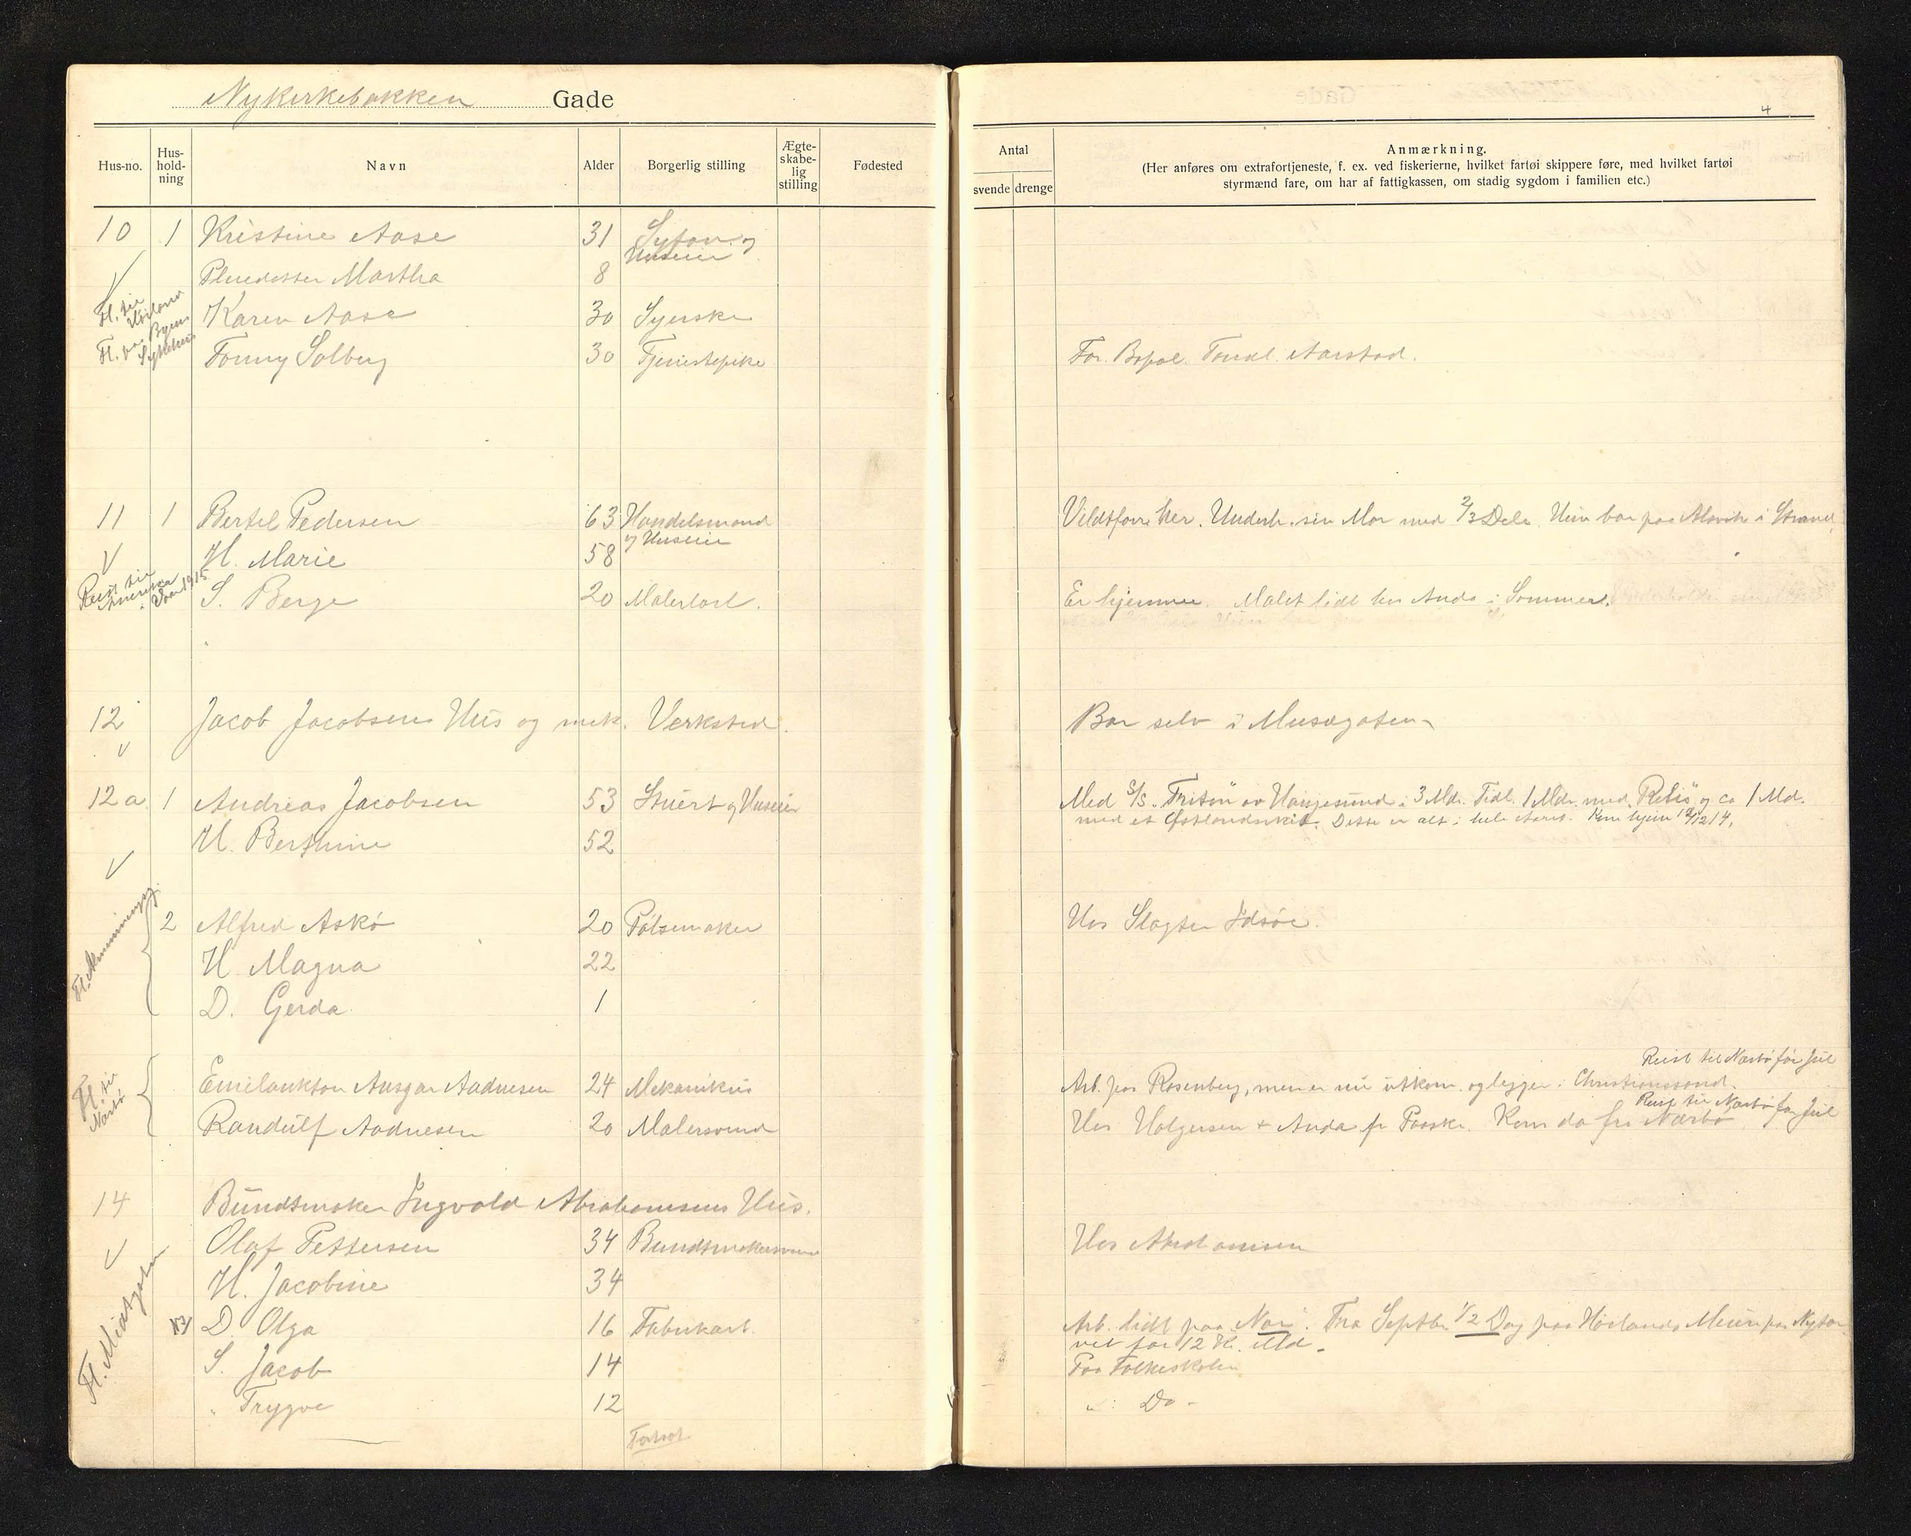 Nykirkebakken Gade
4
Hus-no. Hus-hold-ning Navn Alder Borgerlig stilling Ægte-skabe-lig stilling Fødested
Antal svende drenge
Anmærkning.
(Her anføres om extrafortjeneste, f. ex. ved fiskerierne, hvilket fartøi skippere føre, med hvilket fartøi
styrmænd fare, om har af fattigkassen, om stadig sygdom i familien etc.)
10 1 Kristine Aase 31 Syforr. og Huseier
Pleiedatter Martha 8
Fl. til
Karen Aase 30 Syerske
Fl. Byens Sykehus
Tonny Solberg 30 Tjenestepike For. Bopæl. Aarstad.
11 1 Bertel Pedersen 63 Handelsmand og Huseier Underh. sin Mor med 2/3 Dele. Hun bor paa Alsvik i Strand.
H. Marie 58
Reist til Amerika i Vaar 1915
S. Berge 20 Malerlærl. Er hjemme. Malet lidt hos Anda i Sommer.
12 Jacob Jacobsens Hus og mek. Verksted. Bor selv i Musegaten
12a. 1 Andreas Jacobsen 53 Stuert og Huseier Med S/S. "Triton" av Haugesund i 3 Mdr. Tidl. 1 Mdr. med og ca 1 Md.
med et Østlandsskib. Dette er alt i hele Aaret. Kom hjem 12/12 14.
H. Berthine 52
2 Alfred Askø 20 Pølsemaker Hos Slagter Idsøe.
H. Magna 22
D. Gerda 1
Fl. til Nærbø
Reist til Nærbø før Jul
Ansgar Aadnesen 24 Mekanikus Arb. paa Rosenberg, men er nu utkom. og ligger i Christianssand.
Reist til Nærbø før Jul
Randulf Aadnesen 20 Malersvend Hos Holgersen + Anda fr Paaske. Kom da fra Nærbø
14 Bundtmaker Ingvald Abrahamsens Hus.
Olaf Pettersen 34 Bundtmakersvend Hos Abrahamsen
H. Jacobine 34
Fl. Midtgaten
D. Olga 16 Fabrikarb. Arb. lidt paa Nor. Fra Septbr 1/2 Dag paa Høilands Meieri paa Nytor-
vet for 12 Kr. Md.
S. Jacob 14 Paa Folkeskolen
" Trygve 12 " Do -
Fortsat